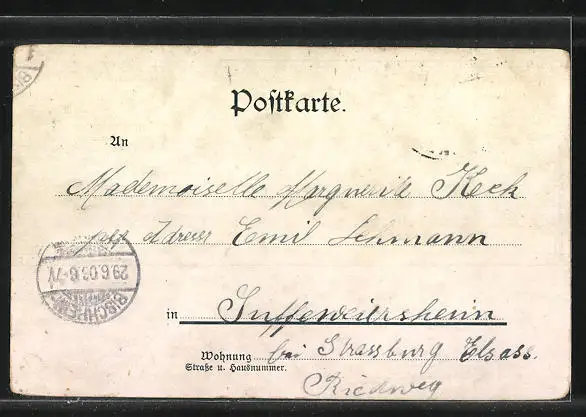 Postkarte.
An
Mademoiselle Marguerite Keck
Adresse Emil Lehmann
in Suffeweiersheim
Wohnung bei Strassburg Elsass.
Straße u. Hausnummer.
Riedweg
BISCHHEIM
29.6.03.6-7N